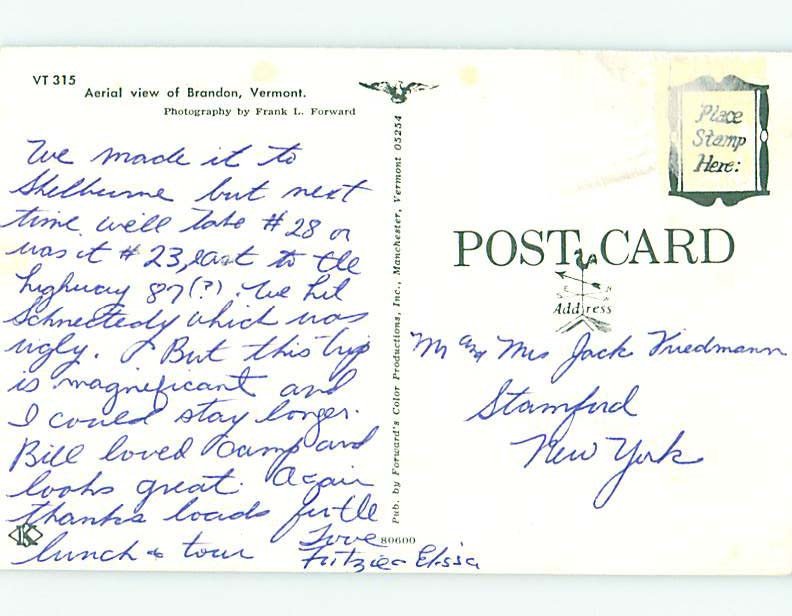 VT 315
Aerial view of Brandon, Vermont.
Photography by Frank L. Forward
We made it to
Shelburne but next
time we'll take #28 or
was it #23, east to the
highway 87(?). We hit
Schnectedy which was
ugly. But this trip
is magnificant and
I could stay longer.
Bill loved camp and
looks great. Again
thanks loads for the
lunch & tour
Love
Fritzie & Elissa
K
Pub. by Forward's Color Productions, Inc., Manchester, Vermont 05254
80600
Place
Stamp
Here:
POST CARD
E N
Address
Mr and Mrs Jack Friedmann
Stamford
New York